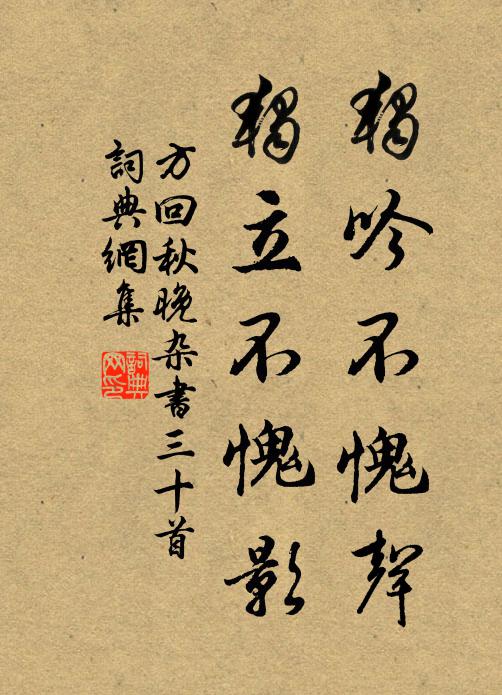 獨吟不愧聲
獨立不愧影
方回秋晚杂書三十首
詞典網集
詞典网印